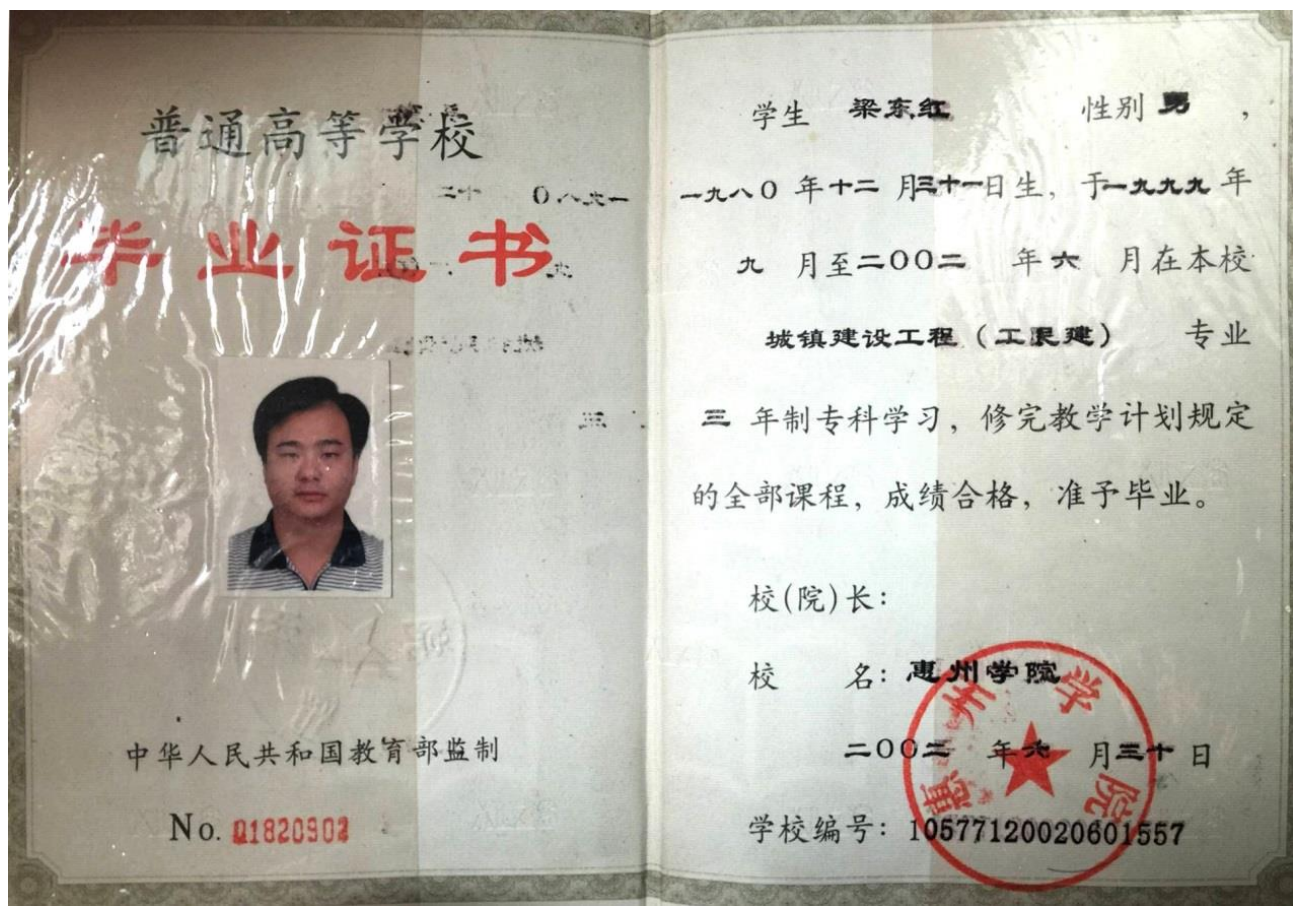 普通高等学校
毕业证书
中华人民共和国教育部监制
No. 01820902
学生 梁东红 性别 男,
一九八〇年十二月三十一日生,于一九九九年
九月至二〇〇二年六月在本校
城镇建设工程(工民建)专业
三年制专科学习,修完教学计划规定
的全部课程,成绩合格,准予毕业。
校(院)长:
校名:惠州学院
二〇〇二年六月三十日
学校编号:10577120020601557
惠州学院